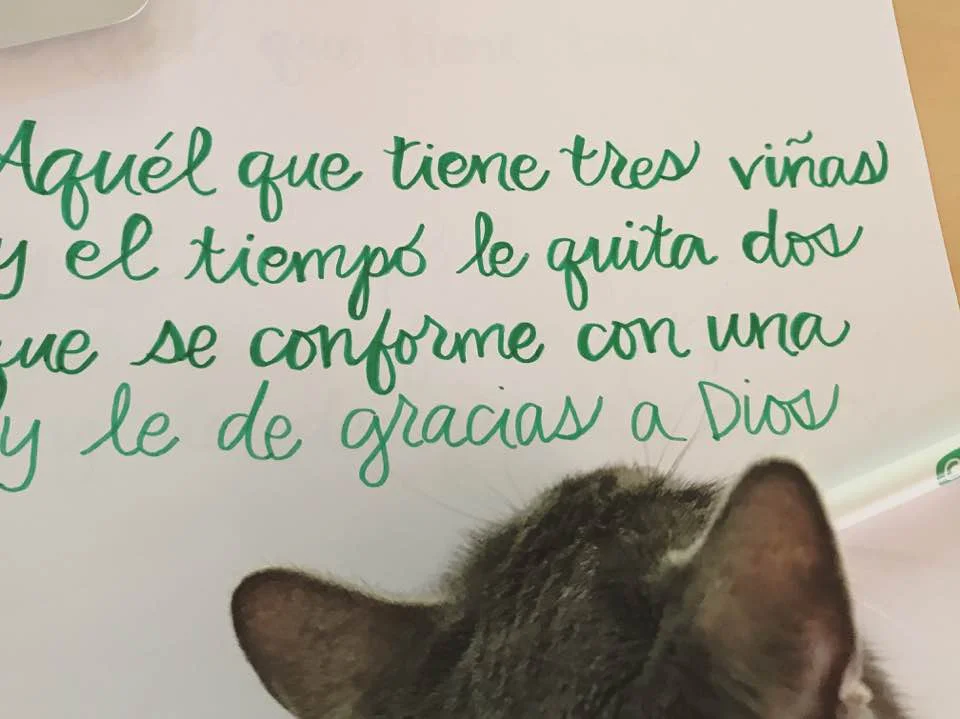 Aquél que tiene tres viñas
y el tiempó le quita dos
que se conforme con una
y le de gracias a Dios